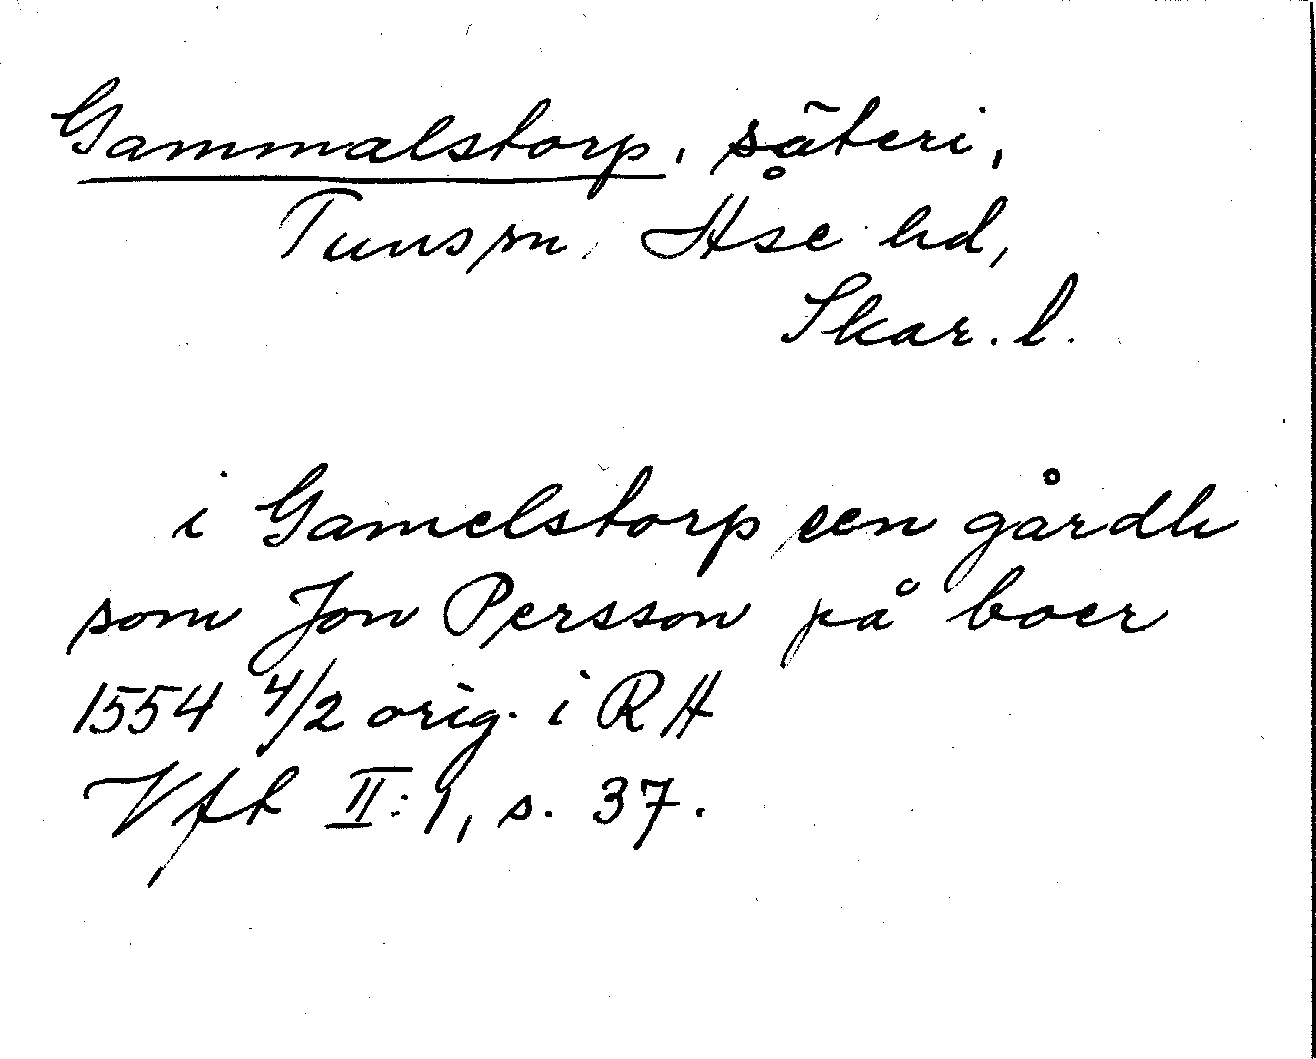 Gammalstorp, säteri,
Tun sn, Åse hd,
Skar. l.
i Gamelstorp een gårdh
som Jon Persson på boer
1554 4/2 orig. i RH
Vfk II:1, s. 37.